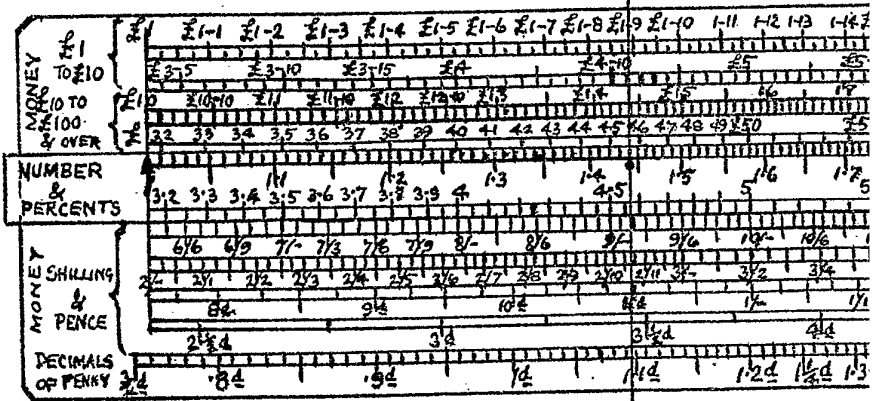 £1 £1-1 £1-2 £1-3 £1-4 £1-5 £1-6 £1-7 £1-8 £1-9 £1-10 1-11 1-12 1-13 1-14
MONEY
£1 TO £10
£3-5 £3-10 £3-15 £4 £4-10 £5 £5
£10 TO £100 & OVER
£10 £10-10 £11 £11-10 £12 £12-10 £13 £14 £15 16 17
32 33 34 35 36 37 38 39 40 41 42 43 44 45 46 47 48 49 £50 £5
NUMBER & PERCENTS
1.1 1.2 1.3 1.4 1.5 1.6 1.7
3.2 3.3 3.4 3.5 3.6 3.7 3.8 3.9 4 4.5 5 5
MONEY
SHILLING & PENCE
6/6 6/9 7/- 7/3 7/6 7/9 8/- 8/6 9/- 9/6 10/- 10/6
2/- 2/1 2/2 2/3 2/4 2/5 2/6 2/7 2/8 2/9 2/10 2/11 3/- 3/2 3/4
8d 9d 10d 11d 1/- 1/1
2½d 3d 3½d 4d
DECIMALS OF PENNY
¾d .8d .9d 1d 1.1d 1.2d 1¼d 1.3